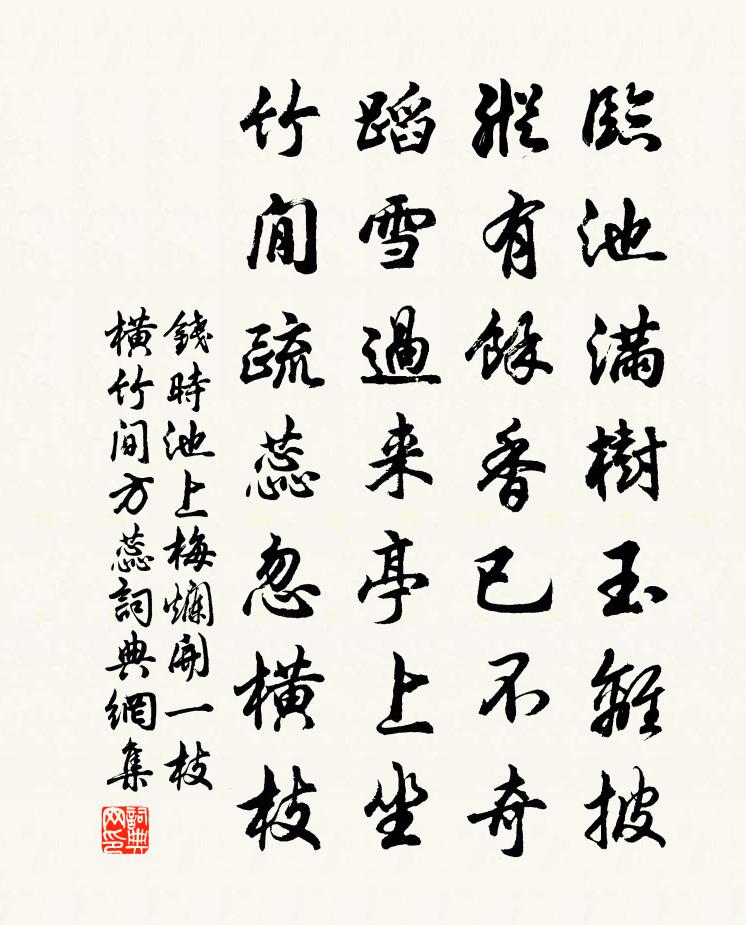 臨池滿樹玉離披
縱有餘香已不奇
蹈雪過来亭上坐
竹間疏蕊忽橫枝
錢時池上梅爛開一枝
橫竹间方蕊詞典網集
詞典
网印